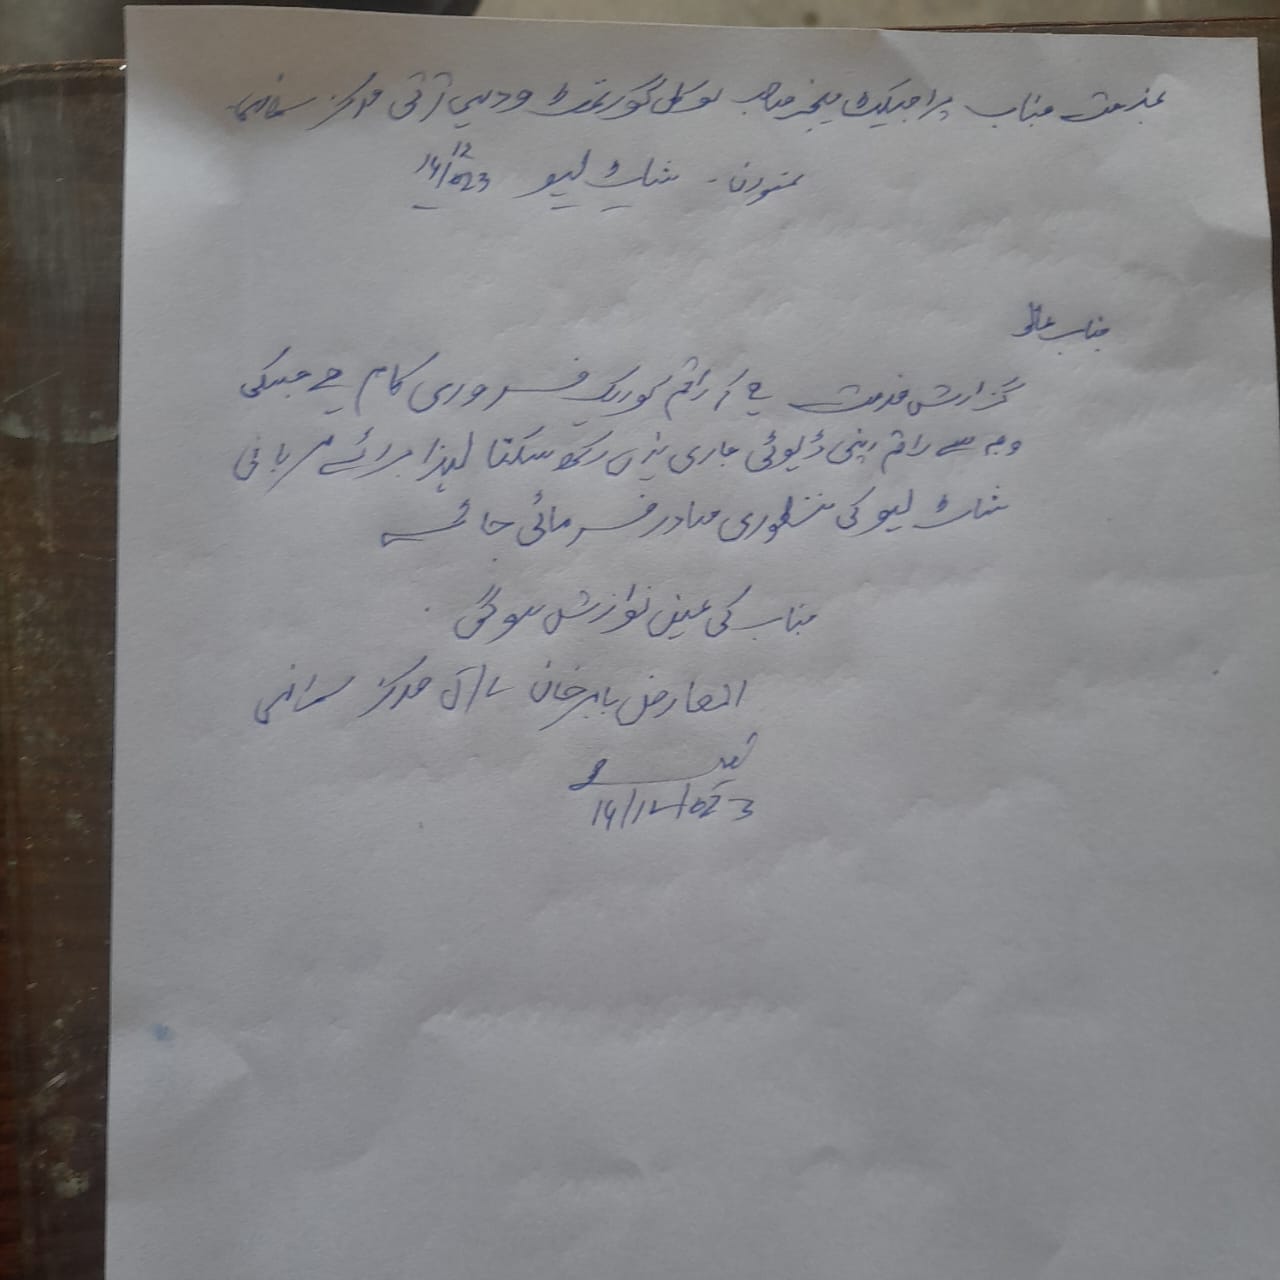 بخدمت جناب پراجیکٹ مینجر صاحب لوکل گورنمنٹ و دیہی ترقی مرکز سماہنی
بمضمون - شارٹ لیو 14/12/023
جناب عالی
گزارش خدمت ہے کہ راقم کو ایک ضروری کام ہے جسکی
وجہ سے راقم اپنی ڈیوٹی جاری نہیں رکھ سکتا لہذا برائے مہربانی
شارٹ لیو کی منظوری صادر فرمائی جائے
جناب کی عین نوازش ہوگی
العارض بابر خان مرکز سماہنی
14/12/023